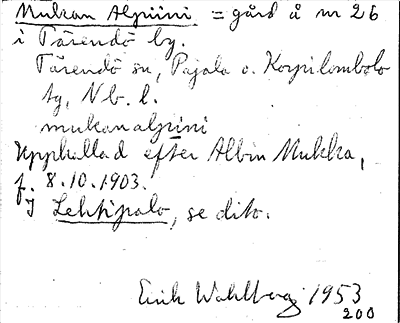 Mukan Alpiini = gård å nr 26
i Tärendö by.
Tärendö sn, Pajala o. Korpilombolo
tg, Nb. l.
mukanalpiini
Uppkallad efter Albin Mukka,
f. 8.10.1903.
I Lehtipalo, se dito.
Erik Wahlberg 1953
200